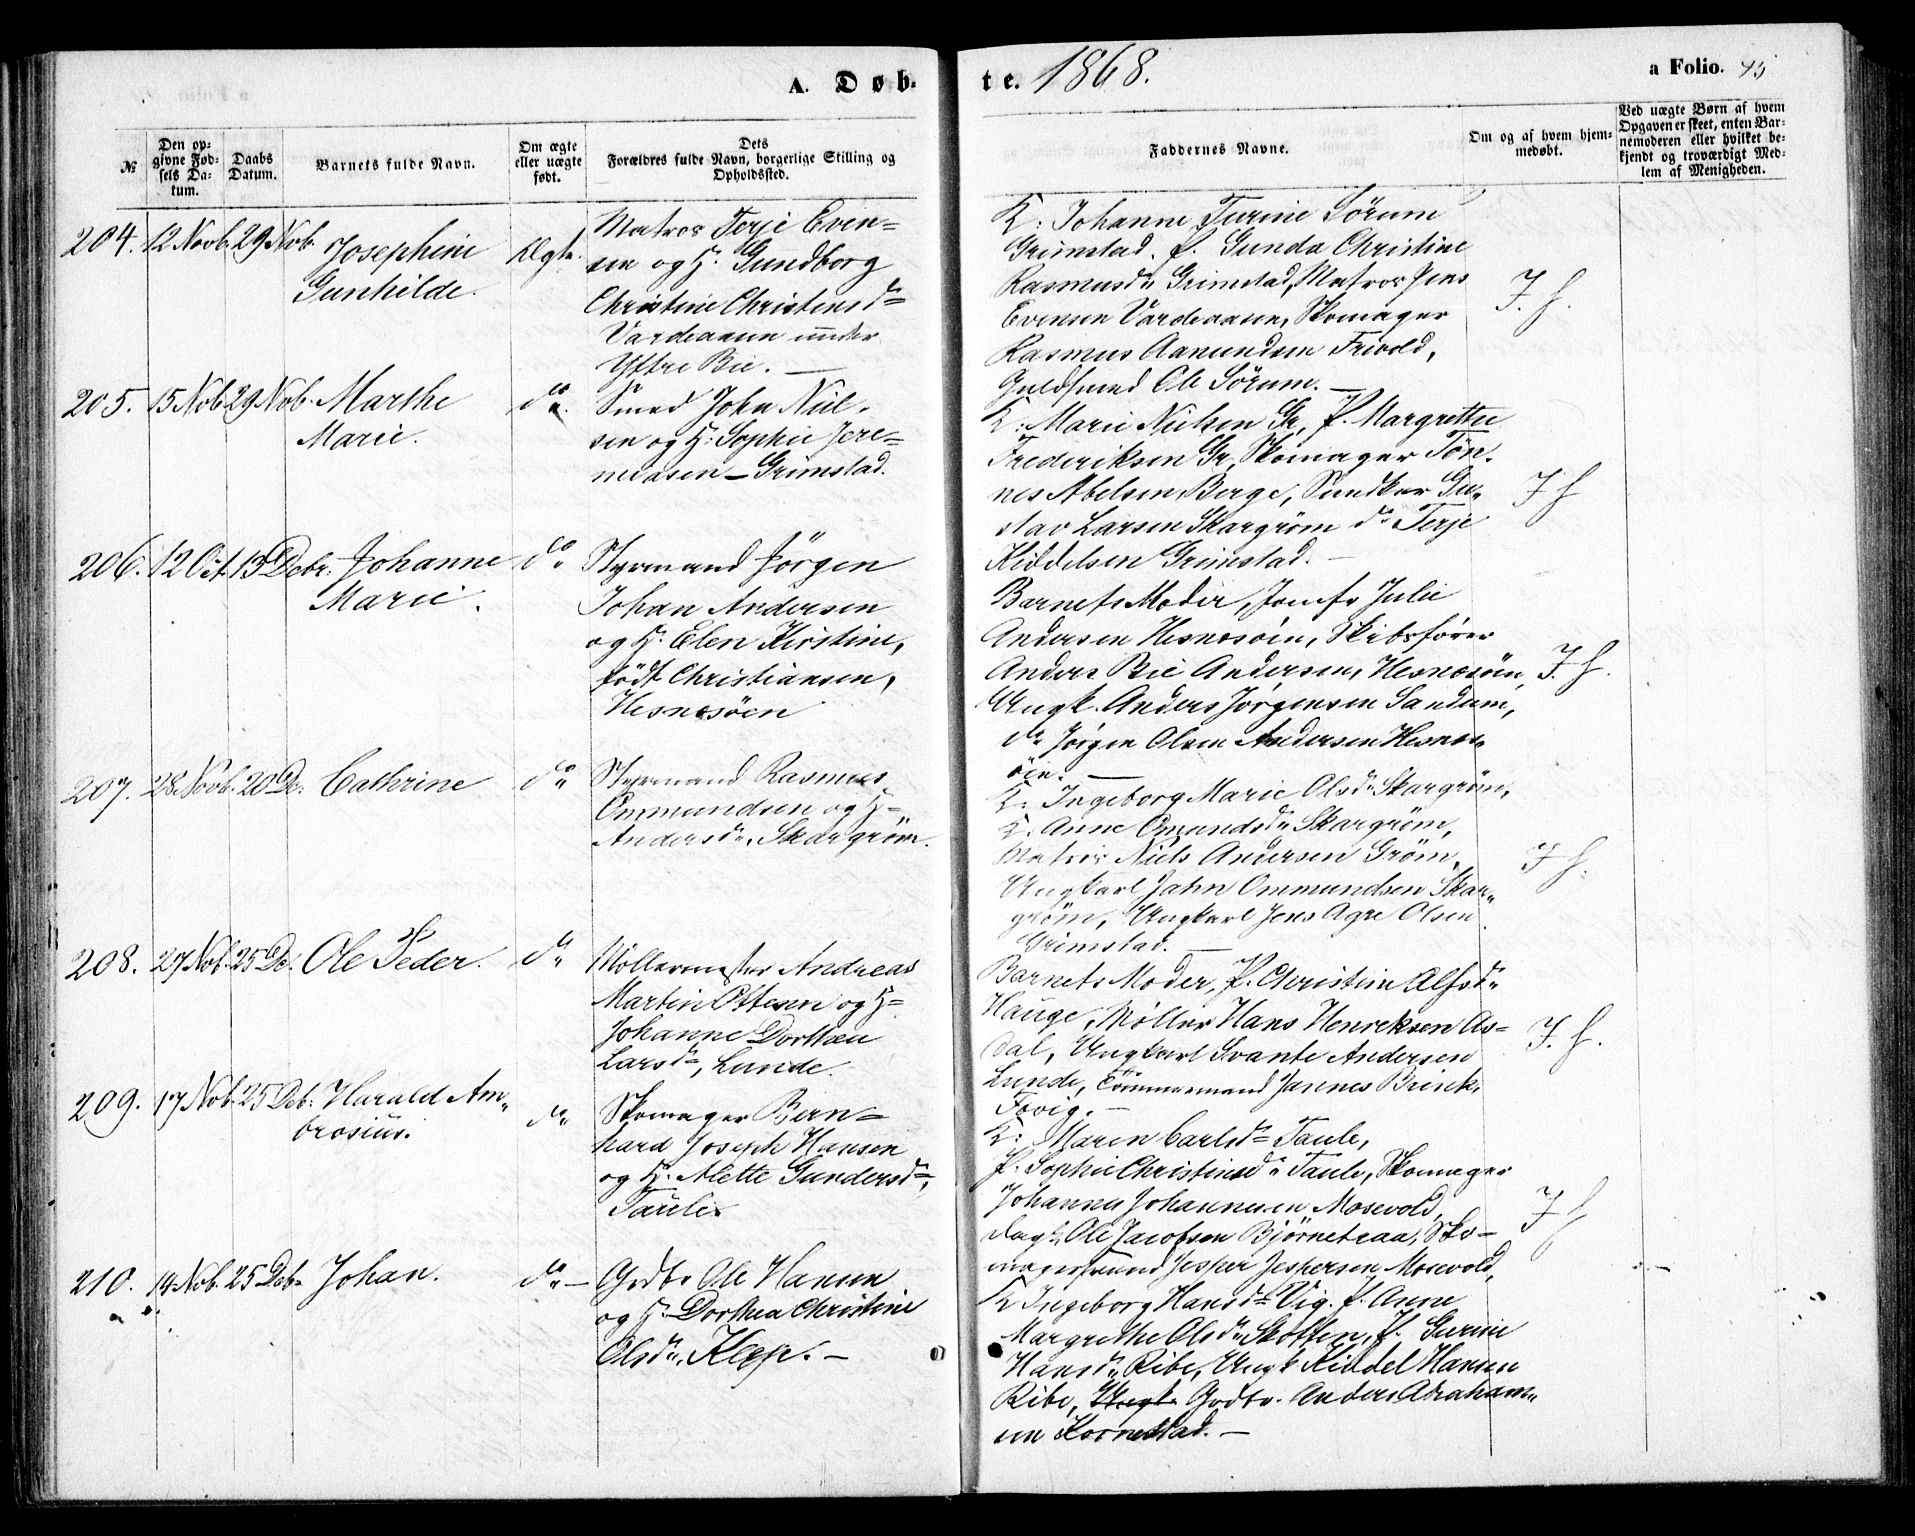 A. Døb-
te. 1868.
a Folio. 45
№
Den op-
givne Fød-
sels Da-
tum.
Daabs
Datum.
Barnets fulde Navn.
Om ægte
eller uægte
født.
Dets
Forældres fulde Navn, borgerlige Stilling og
Opholdssted.
Faddernes Navne.
Om og af hvem hjem-
medøbt.
Ved uægte Børn af hvem
Opgaven er skeet, enten Bar-
nemoderen eller hvilket be-
kjendt og troværdigt Med-
lem af Menigheden.
204. 12 Novb. 29 Nvb. Josephine
Gunhilde.
Ægte.
Matros Terje Even-
sen og H. Gundborg
Christine Christensd.
Vardeaasen under
Yttre Bie. —
K: Johanne Turine Sörum
Grimstad. P. Gunda Christine
Rasmusd. Grimstad, Matros Jens
Evensen Vardeaasen, Skomager
Rasmus Aanundsen Frivold,
Guldsmed Ole Sörum. —
J. f.
205. 15 Nob. 29 Nob. Marthe
Marie.
do.
Smed John Niel-
sen og H. Sophie Jere-
measen - Grimstad.
K: Marie Nielsen Gr, P. Margrethe
Frederiksen Gr, Skomager Tön-
nes Abelsen Berge, Snedker Gu-
stav Larsen Skargröm do Terje
Kiddelsen Grimstad. —
J f
206. 12 Oct. 13 Debr. Johanne
Marie.
do
Styrmand Jörgen
Johan Andersen
og H. Elen Kirstine,
födt Christiansen,
Hesnesöen
Barnets Moder, Jomfr Julie
Andersen Hesnesöen, Skibsförer
Anders Bie Andersen, Hesnesöen,
Ungk. Anders Jörgensen Sandum,
do Jörgen Olsen Andersen Hesnes-
öen. —
J. f.
207. 28 Novb. 20 De. Cathrine
do
Styrmand Rasmus
Ommundsen og H.
Andersd. Skargröm.
K: Ingeborg Marie Olsd. Skargröm,
K. Anne Omundsd. Skargröm,
Matros Niels Andersen Gröm,
Ungkarl Jahn Ommundsen Skar-
gröm, Ungkarl Jens Agre Olsen
Grimstad. —
J f.
208. 27 Nob. 25 De. Ole Peder.
do
Möllermester Andreas
Martin Ottesen og H.
Johanne Dorthea
Larsd., Lunde.
Barnets Moder, P. Christine Alfsd.
Hauge, Möller Hans Henreksen As-
dal, Ungkarl Svante Andersen
Lunde, Tömmermand Jannes Brink,
Fevig. —
J. f.
209. 17 Nob. 25 Deb. Harald Am-
brosius.
do
Skomager Bern-
hard Joseph Hansen
og H. Alette Gundersd.,
Taule.
K: Maren Carlsd. Taule,
P. Sophie Christensd. Taule, Skomager
Johannes Johannesen Mosevold,
Ungk. Ole Jacobsen Björneteaa, Sko-
magersvend Jesper Jespersen Mosevold,
J f
210. 14 Nob. 25 Deb. Johan.
do —
Grdbr Ole Hansen
og H. Dorthea Christine
Olsd. Klep. —
K Ingeborg Hansd. Vig. P. Anne
Margrethe Olsd. Skotten, P. Gurine
Hansd. Ribe, Ungk Kiddel Hansen
Ribe, Ungk. Grdbr. Anders Abraham-
sen Kornestad. —